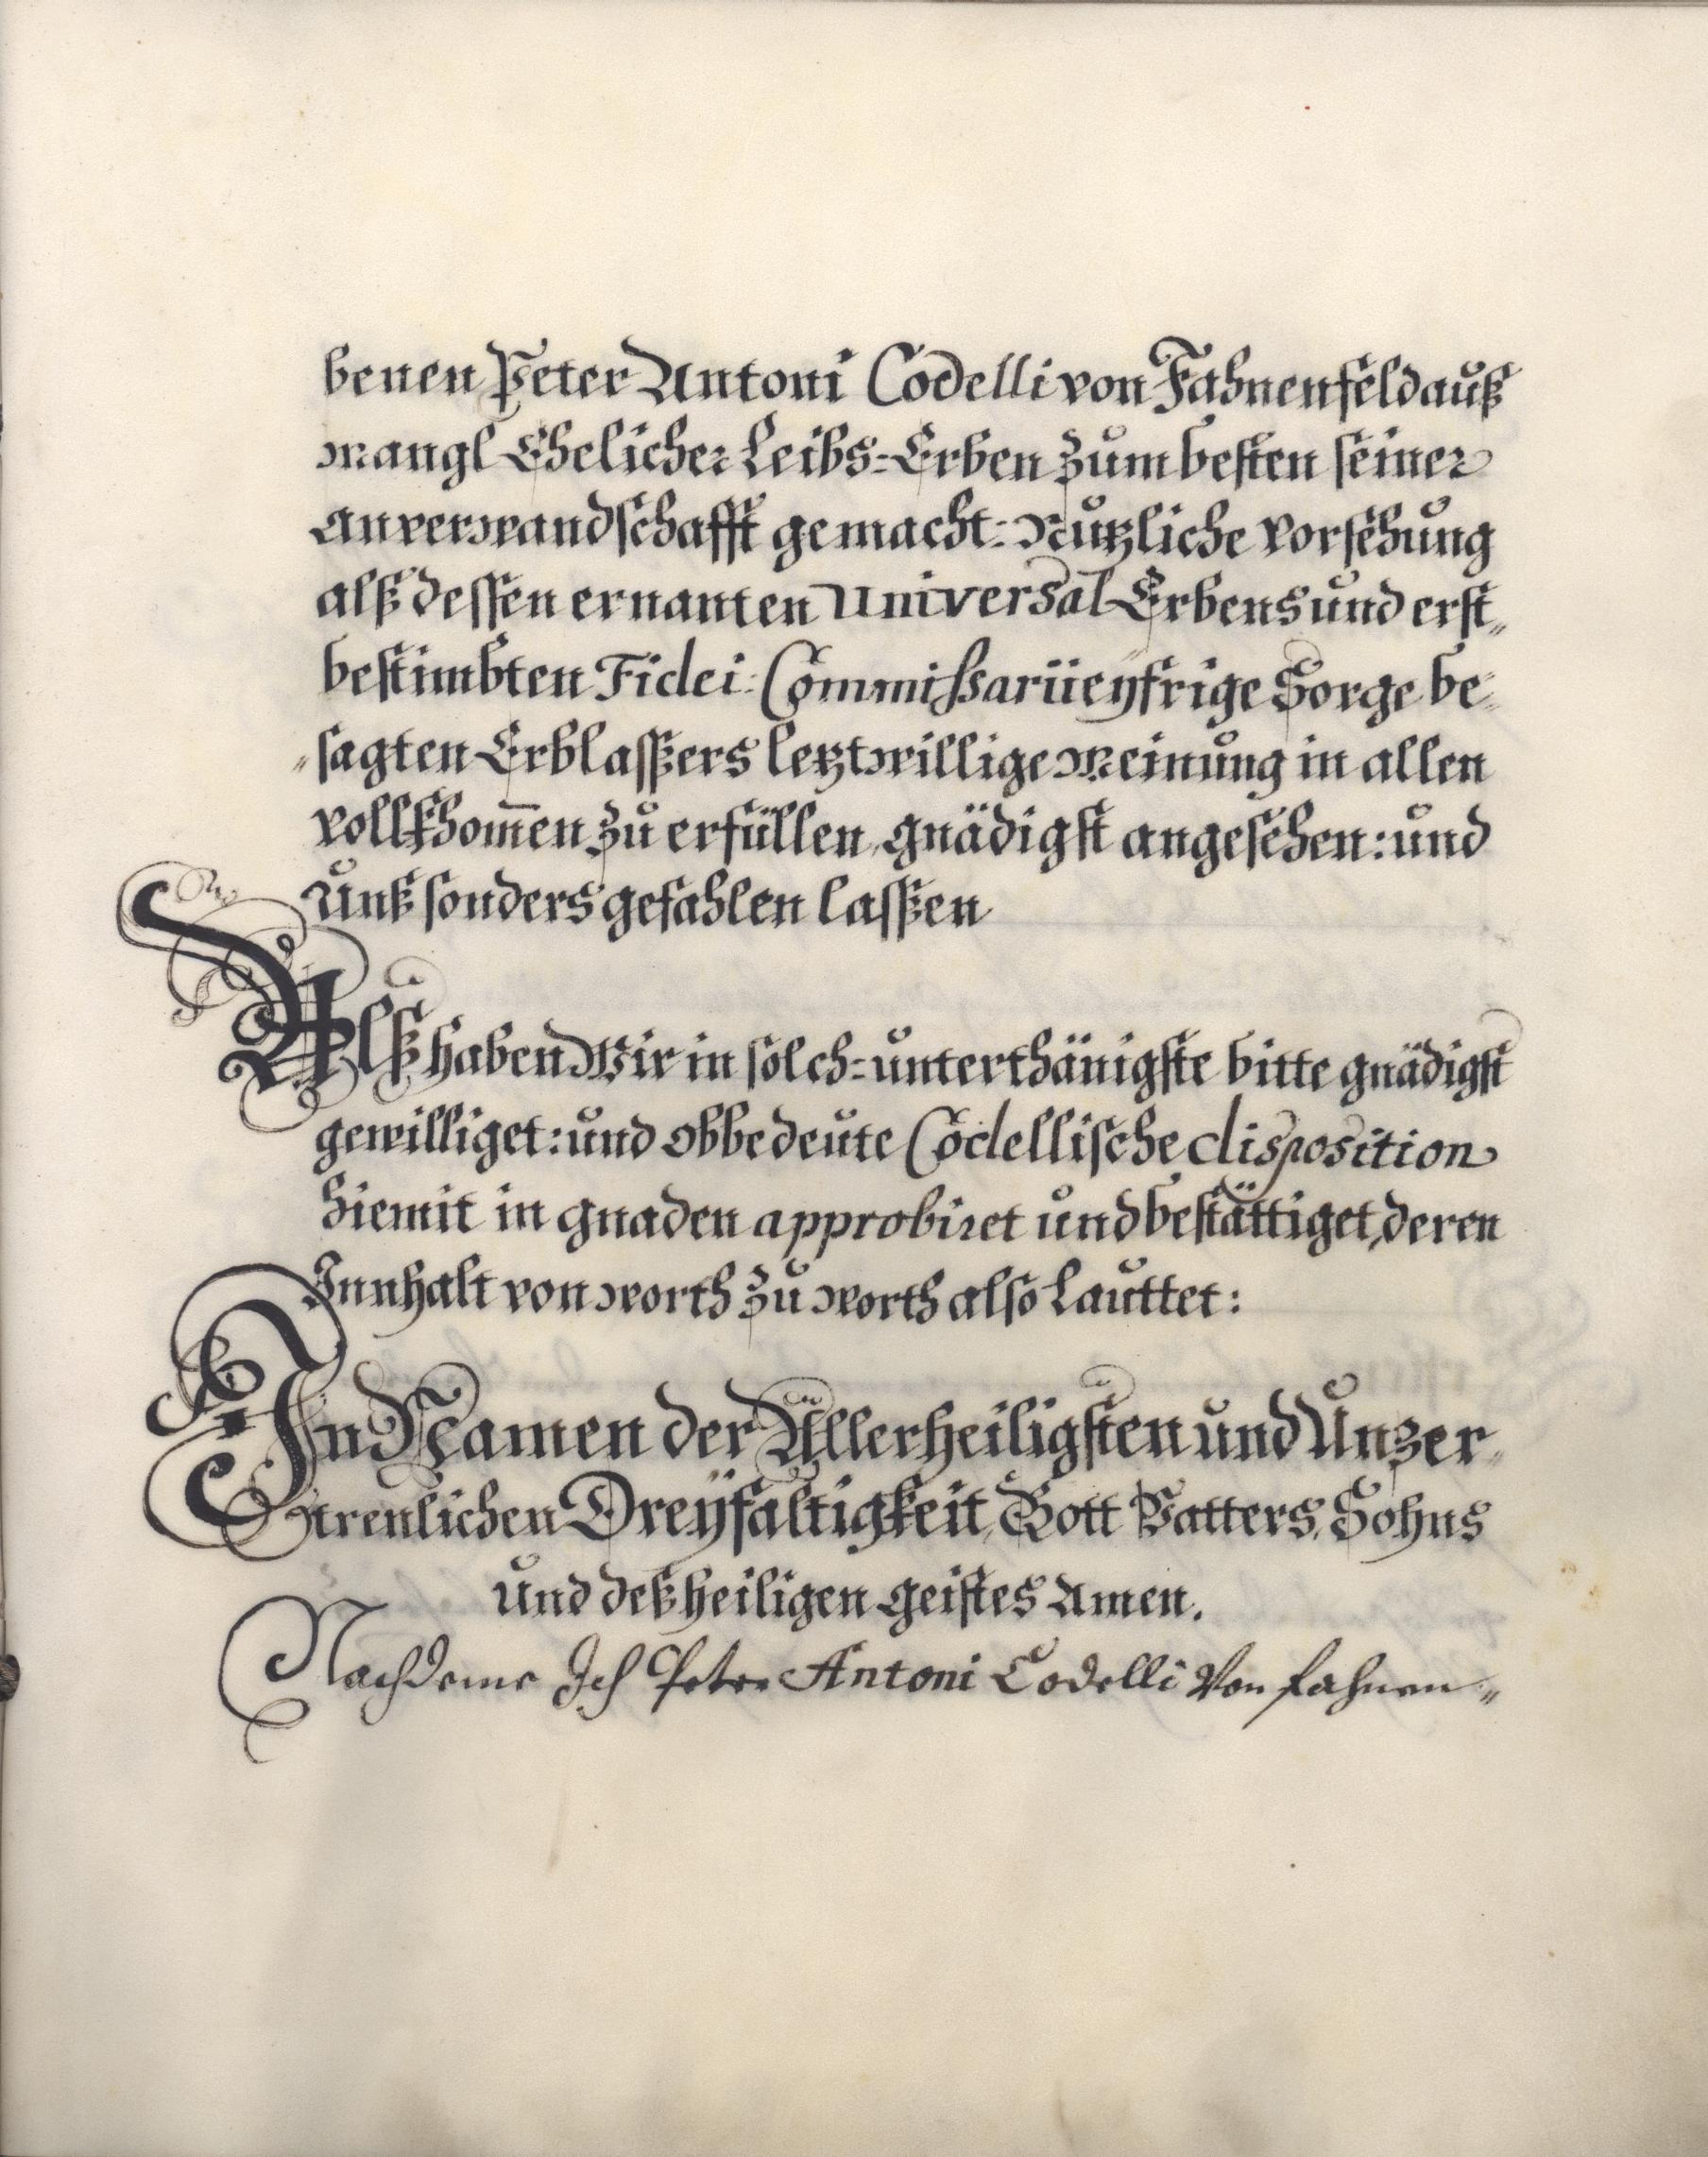 benen Peter Antoni Codelli von Fahnenfeld auß
Mangl Ehelicher Leibs=Erben zum besten seiner
Anverwandschafft gemacht: Nutzliche Vorsehung
alß dessen ernanten Universal Erbens und erst„
bestimbten Fidei: Commißarii eyfrige Sorge be„
„sagten Erblassers letztwillige Meinung in allen
vollkhom̄en zu erfüllen, gnädigst angesehen: und
Unß sonders gefahlen lassen
Alß haben Wir in solch=unterthänigste bitte gnädigst
gewilliget: und obbedeute Codellische disposition
hiemit in gnaden approbiret und bestättiget, deren
Innhalt von worth zu worth also Lauttet:
In Namen der Allerheiligsten und Unzer„
trenlichen Dreÿfaltigkeit, Gott Vatters, Sohns
Und deß heiligen geistes Amen.
Nachdeme Ich Peter Antoni Codelli Von Fahnen„